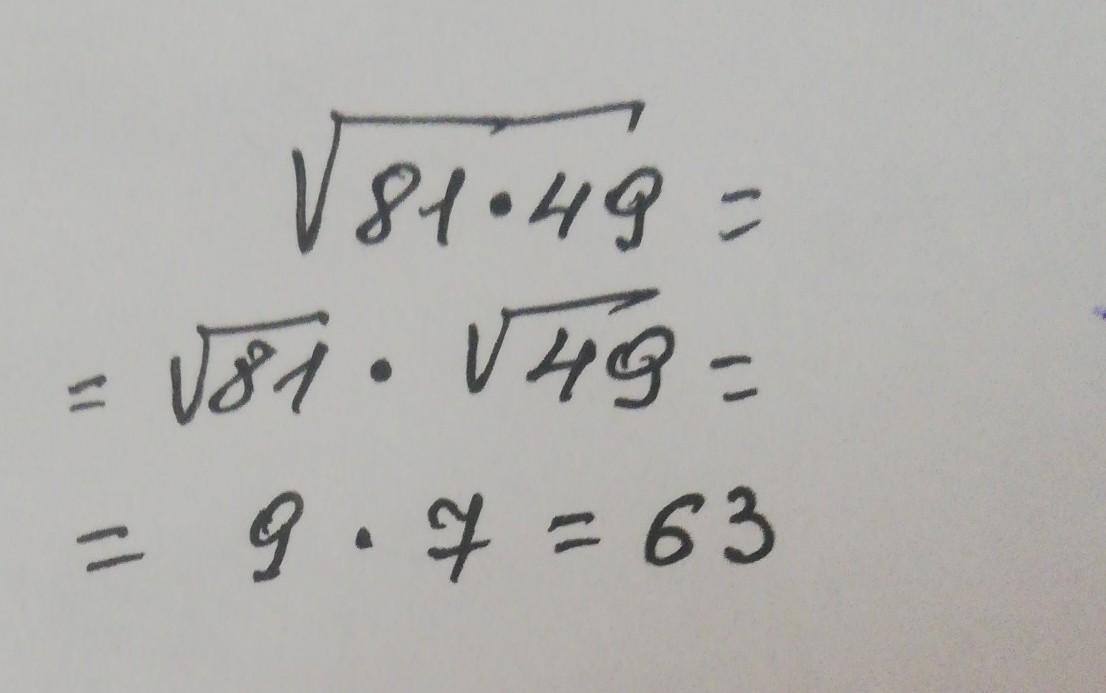 √81·49 =
= √81 · √49 =
= 9 · 7 = 63